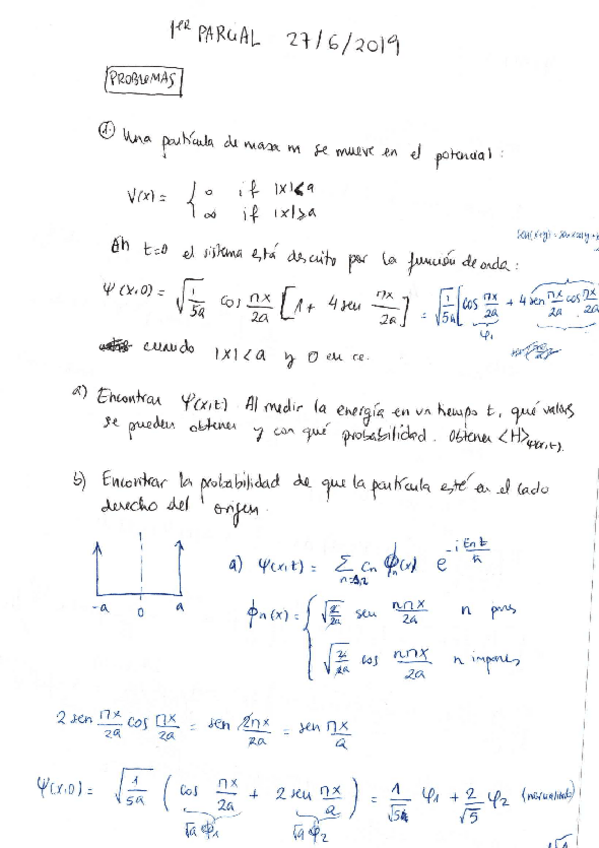 1ER PARCIAL 27/6/2019
PROBLEMAS
① Una partícula de masa m se mueve en el potencial:
V(x) = { 0 if |x|<a
∞ if |x|>a
En t=0 el sistema está descrito por la función de onda:
Ψ(x,0) = √(1/5a) cos πx/2a [1 + 4 sen πx/2a] = √(1/5a) [cos πx/2a + 4 sen πx/2a cos πx/2a
φ₁
cuando |x|<a y 0 en
a) Encontrar Ψ(x,t) Al medir la energía en un tiempo t, qué valores
se pueden obtener y con qué probabilidad. Obtener <H>Ψ(x,t).
b) Encontrar la probabilidad de que la partícula esté en el lado
derecho del origen.
-a 0 a
a) Ψ(x,t) = Σ n=1,2 Cn ϕn(x) e^(-i En t/ħ)
ϕn(x) = { √(2/2a) sen nπx/2a n pares
√(2/2a) cos nπx/2a n impares
2 sen πx/2a cos πx/2a = sen 2πx/2a = sen πx/a
Ψ(x,0) = √(1/5a) ( cos πx/2a + 2 sen πx/a ) = 1/√5 φ₁ + 2/√5 φ₂ (normalizada)
√a ϕ₁ √a ϕ₂